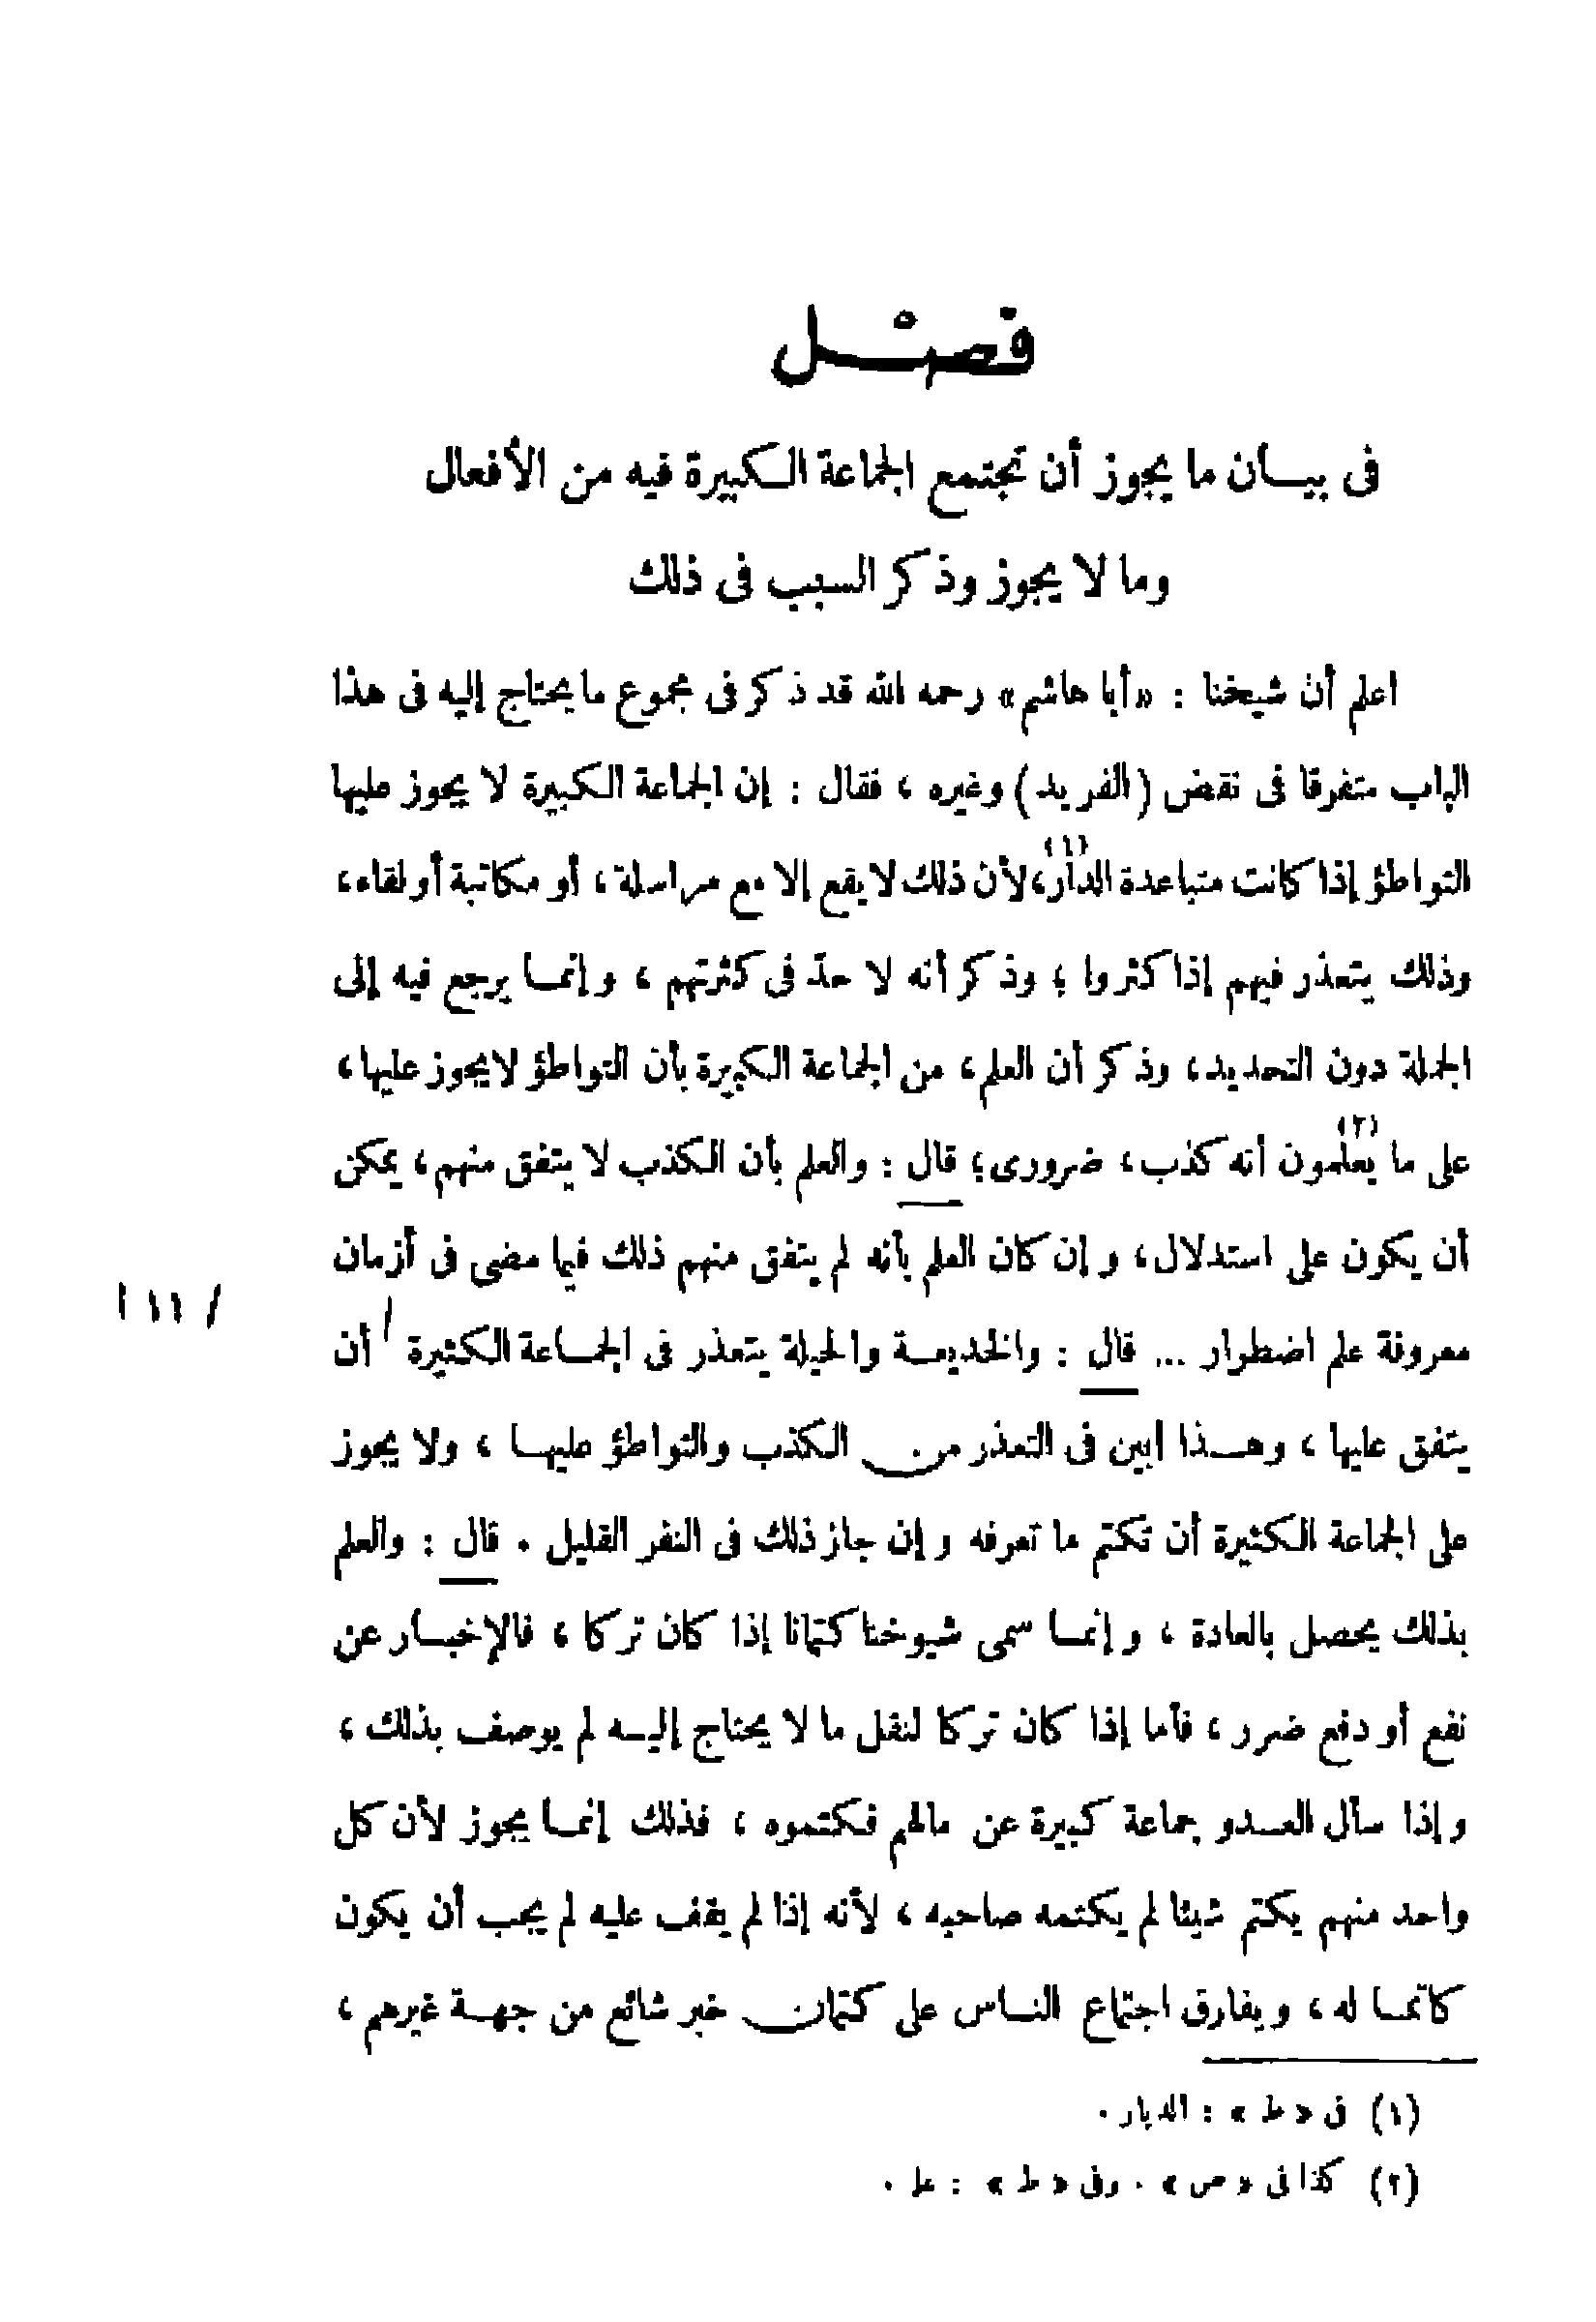 فصْـــل
فى بيـــان ما يجوز أن تجتمع الجماعة الـكبيرة فيه من الأفعال
وما لا يجوز وذكر السبب فى ذلك
اعلم أن شيخنا : «أبا هاشم» رحمه الله قد ذكر فى مجموع ما يحتاج إليه فى هذا
الباب متفرقا فى نقض (الفريد) وغيره ، فقال : إن الجماعة الـكبيرة لا يجوز عليها
التواطؤ إذا كانت متباعدة الدار(١)، لأن ذلك لا يقع إلا مع مراسلة، أو مكاتبة أو لقاء،
وذلك يتعذر فيهم إذا كثروا ؛ وذكر أنه لا حدّ فى كثرتهم ، وإنمـا يرجع فيه إلى
الجملة دون التحديد، وذكر أن العلم، من الجماعة الـكبيرة بأن التواطؤ لا يجوز عليها،
على ما يعلمون(٢) أنه كذب، ضرورى؛ قال : والعلم بأن الـكذب لا يتفق منهم، يمكن
أن يكون على استدلال، وإن كان العلم بأنه لم يتفق منهم ذلك فيما مضى فى أزمان
معروفة علم اضطرار ... قال : والخديعـــة والحيلة يتعذر فى الجمـــاعة الـكثيرة / أن
/ ١١ ا
يتفق عليها ، وهـــذا أبين فى التعذر من الـكذب والتواطؤ عليهـــا ، ولا يجوز
على الجماعة الـكثيرة أن تكتم ما تعرفه وإن جاز ذلك فى النفر القليل . قال : والعلم
بذلك يحصل بالعادة ، وإنمـا سمى شيوخنا كتمانا إذا كان تركا ، فالإخبـــار عن
نفع أو دفع ضرر ، فأما إذا كان تركا لنقل ما لا يحتاج إليـــه لم يوصف بذلك ،
وإذا سأل العـــدو جماعة كبيرة عن مالهم فـكتموه ، فذلك إنمـا يجوز لأن كل
واحد منهم يكتم شيئا لم يكتمه صاحبه ، لأنه إذا لم يقف عليه لم يجب أن يكون
كاتمـا له ، ويفارق اجتماع النـــاس على كتمان خبر شائع من جهـــة غيرهم ،
(١) فى «ط» : الديار .
(٢) كذا فى «ص» . وفى «ط» : علم .